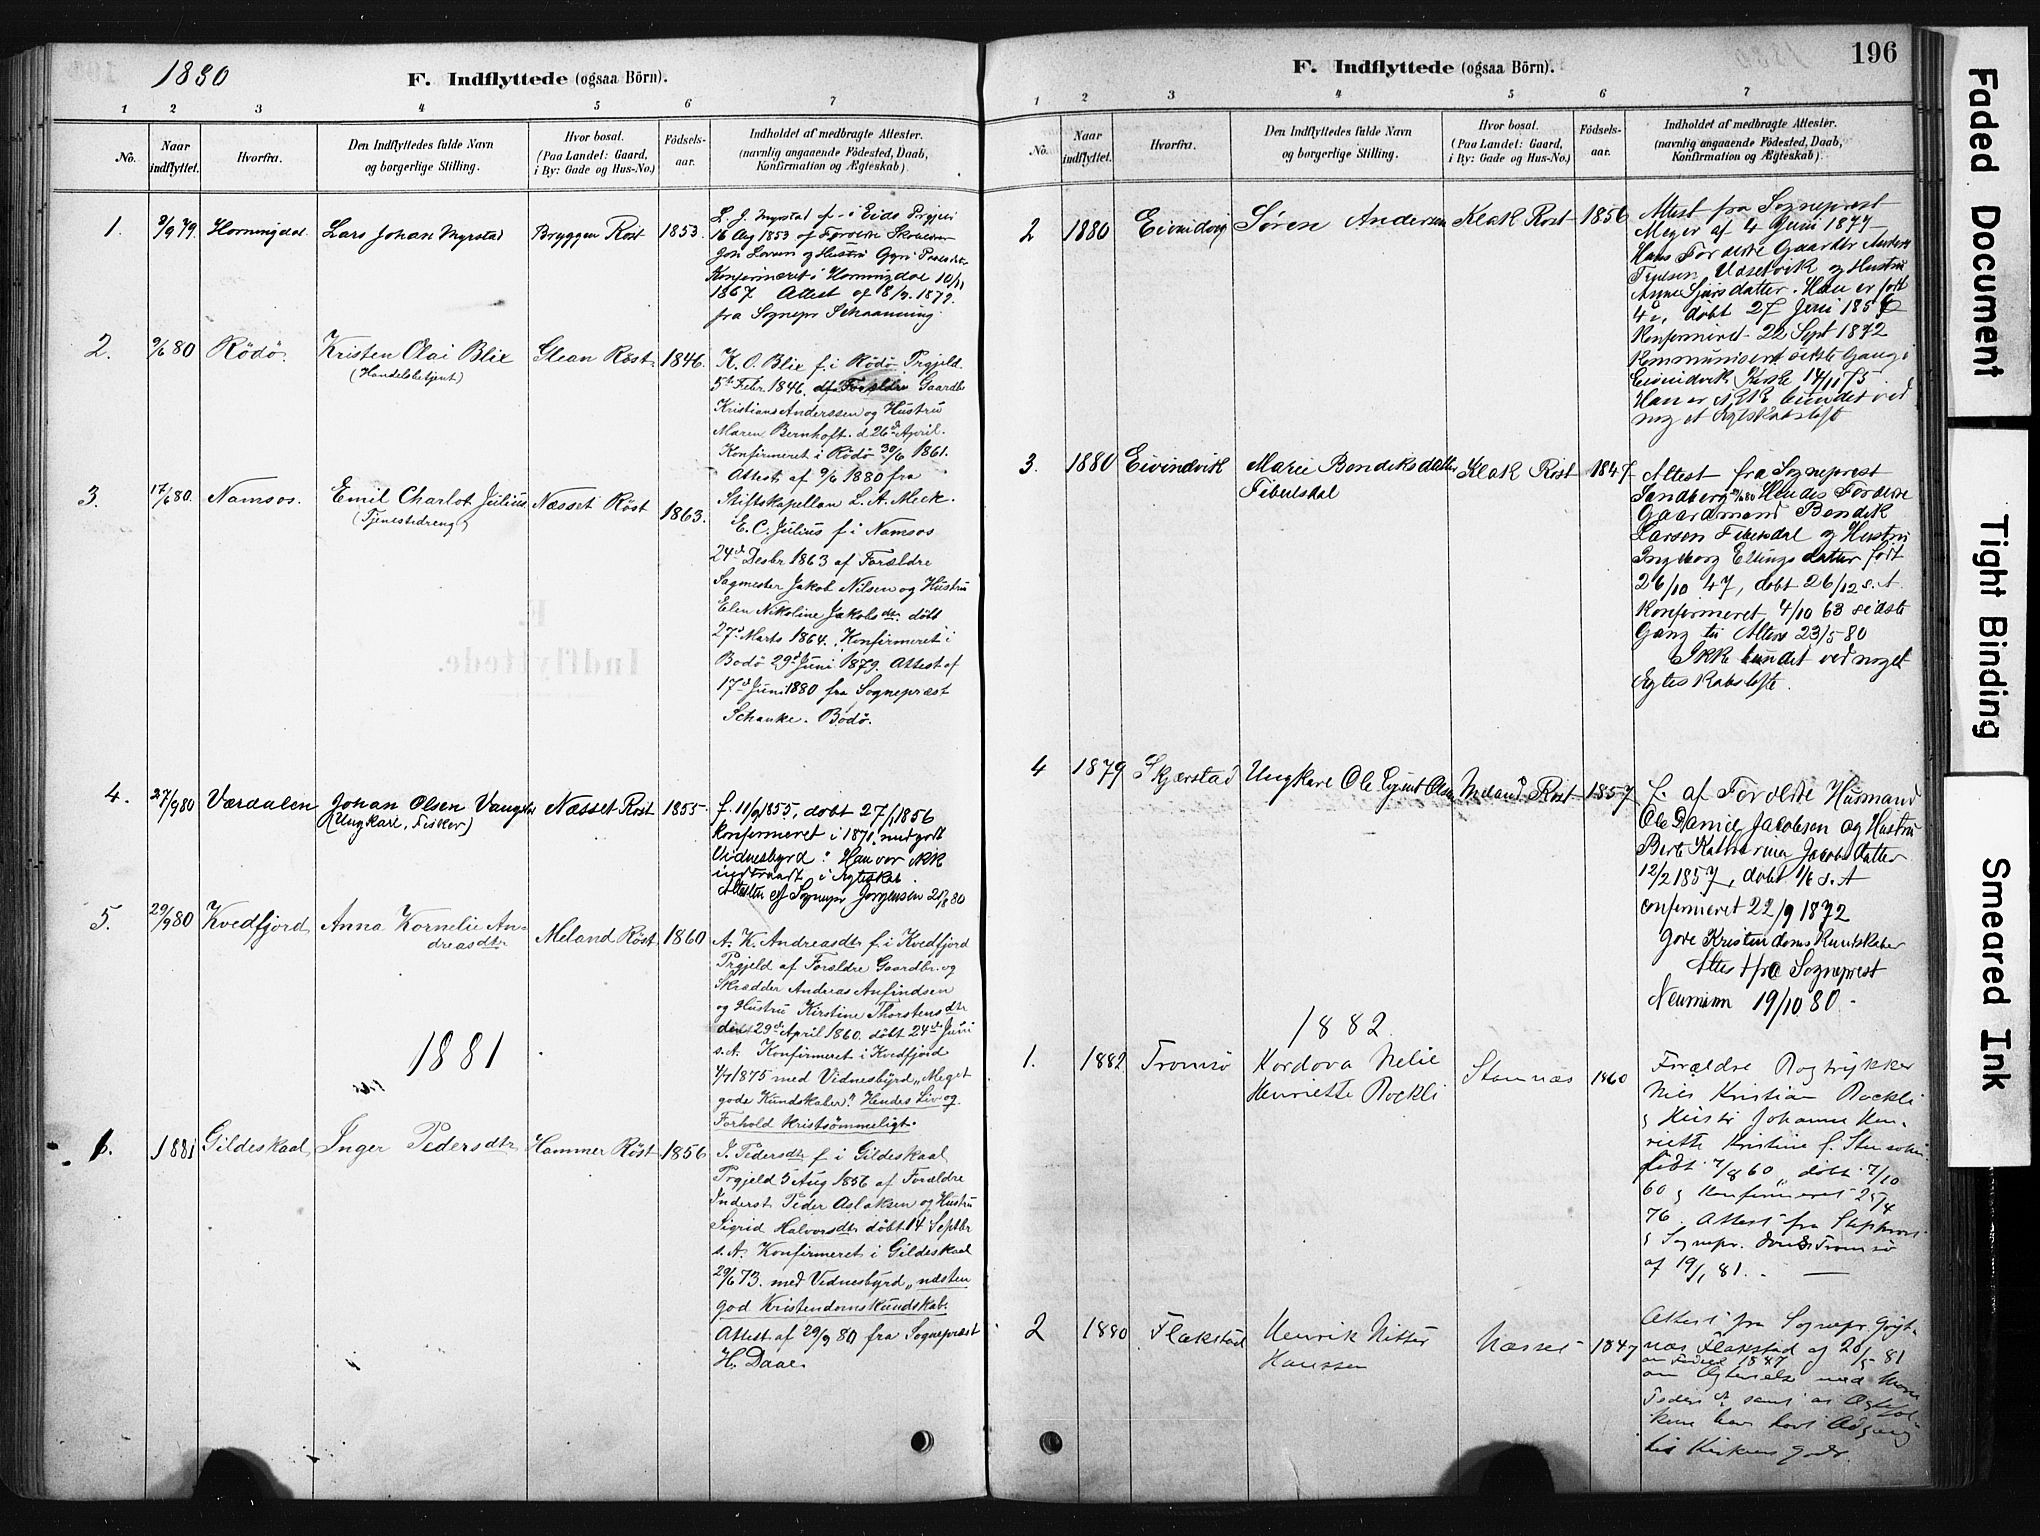 1880
F. Indflyttede (ogsaa Börn).
1 2 3 4 5 6 7
No.
Naar
indflyttet.
Hvorfra.
Den Indflyttedes fulde Navn
og borgerlige Stilling.
Hvor bosat.
(Paa Landet: Gaard,
i By: Gade og Hus-No.)
Födsels-
aar.
Indholdet af medbragte Attester.
(navnlig angaaende Födested, Daab,
Konfirmation og Ægteskab).
1. 9/9 79 Horningdal Lars Johan Myrstad Bryggen Röst 1853.
L. J. Myrstad f. i Eids Prgjeld
16 Aug 1853 af Forældre
Konfirmeret i Horningdal
1867. Attest af 8/9 1879.
fra Sognepr Schaanning.
2. 9/6 80 Rödö. Kristen Olai Blix Glean Röst 1846.
(Handelsbetjent)
K. O. Blix f. i Rödö Prgjeld.
5te Febr. 1846. af Forældre Gaardbr.
Kristian Anderssen og Hustru
Maren Bernhoft. d 26d April.
Konfirmeret i Rödö 30/6 1861.
Attest af 9/6 1880 fra
Stiftskapellan L. A. Meck.
3. 17/6 80. Namsos. Emil Charlot Julius Næsset Röst 1863.
(Tjenestedreng)
E. C. Julius f. i Namsos
24d Desbr 1863 af Forældre
Sagmester Jakob Nilsen og Hustru
Elen Nikoline Jakobsdtr. döbt
27d Marts 1864. Konfirmeret i
Bodö 29d Juni 1879. Attest af
17d Juni 1880 fra Sognepræst
Schanke. Bodö.
4. 27/9 80 Værdalen Johan Olsen Næsset Röst 1855
(Ungkarl, Fisker)
f. 11/9 1855, døbt 27/1 1856
Konfirmeret i 1871, med godt
Vidnesbyrd. Han var ikke
indtraadt i Ægteskab.
Attesten af Sognepr Jörgensen 21/8 80
5. 29/9 80 Kvedfjord Anna Kornelie An-
dreasdtr Meland Röst 1860
A. K. Andreasdtr f. i Kvedfjord
Prgjeld af Forældre Gaardbr. og
Skrædder Andreas Anfindsen
og Hustru Kirstine Thorstensdtr
den 29d April 1860. döbt 24d Juni
s. A. Konfirmeret i Kvedfjord
4/7 1875 med Vidnesbyrd „Meget
gode Kundskaber." Hendes Liv og
Forhold Kristsömmeligt.
1881
1. 1881 Gildeskaal Inger Pedersdtr Hammer Röst 1856
I. Pedersdtr f. i Gildeskaal
Prgjeld 5 Aug 1856 af Forældre
Inderst Peder Aslaksen og Hustru
Sigrid Halvorsdtr döbt 14 Septbr
s. A. Konfirmeret i Gildeskaal
29/6 73. med Vidnesbyrd „næsten
god Kristendomskundskab.
Attest af 29/9 80 fra Sognepræst
H. Daae.
196
F. Indflyttede (ogsaa Börn).
1 2 3 4 5 6 7
No.
Naar
indflyttet.
Hvorfra.
Den Indflyttedes fulde Navn
og borgerlige Stilling.
Hvor bosat.
(Paa Landet: Gaard,
i By: Gade og Hus-No.)
Födsels-
aar.
Indholdet af medbragte Attester.
(navnlig angaaende Födested, Daab,
Konfirmation og Ægteskab).
2 1880 Eivindvig Søren Andersen Klak Röst 1856
Attest fra Sogneprest
Meyer af 4 Juni 1877
Hans Forældre Gaardbr Anders
og Hustru
Anne Sjursdatter. Han er født
døbt 27 Juni 1856
Konfirmeret 22 Sept 1872
Kommuniseret sidste Gang i
Eivindvik Kirke 14/11 75.
Han er ikke bundet ved
noget Ægteskabsløfte
3. 1880 Eivindvik Marie Bendiksdatter Klak Röst 1847
Attest fra Sogneprest
Sandberg Hendes Forældre
Gaardmand Bendik
Larsen og Hustru
Ingeborg Ellingsdatter født
26/10 47, døbt 26/12 s. A.
Konfirmeret 4/10 63 sidste
Gang til Alters 23/5 80
Ikke bundet ved noget
Ægteskabsløfte.
4 1879 Skjærstad Ungkarl Ole Ejnut Olsen Meland Röst 1857
f. af Forældre Husmand
Ole Daniel Jacobsen og Hustru
Berit Katharina Jacobsdatter
12/2 1857, døbt 1/6 s. A
Konfirmeret 22/9 1872
gode Kristendomskundskaber
Attest fra Sogneprest
Neumann 19/10 80.
1882.
1. 1882 Tromsö Kordova Nelie
Henriette Rockli Stamnæs 1860
Forældre Bogtrykker
Nils Kristian Rockli
og Hustru Johanne Hen-
riette Kristine f.
født 7/8 60, døbt 7/10
60 og Konfirmeret 25/4
76. Attest fra
Sognepr. Tromsö
af 19/1 81.
2 1880 Flakstad Henrik Nitter
Hanssen Næsset 1847
Attest fra Sognepr
Flakstad af 20/5 81
om Fødsel 1847
om Ægtevielse med
samt at Ægtefol-
kene har havt Adgang
til Kirkens gode.
Faded Document
Tight Binding
Smeared Ink